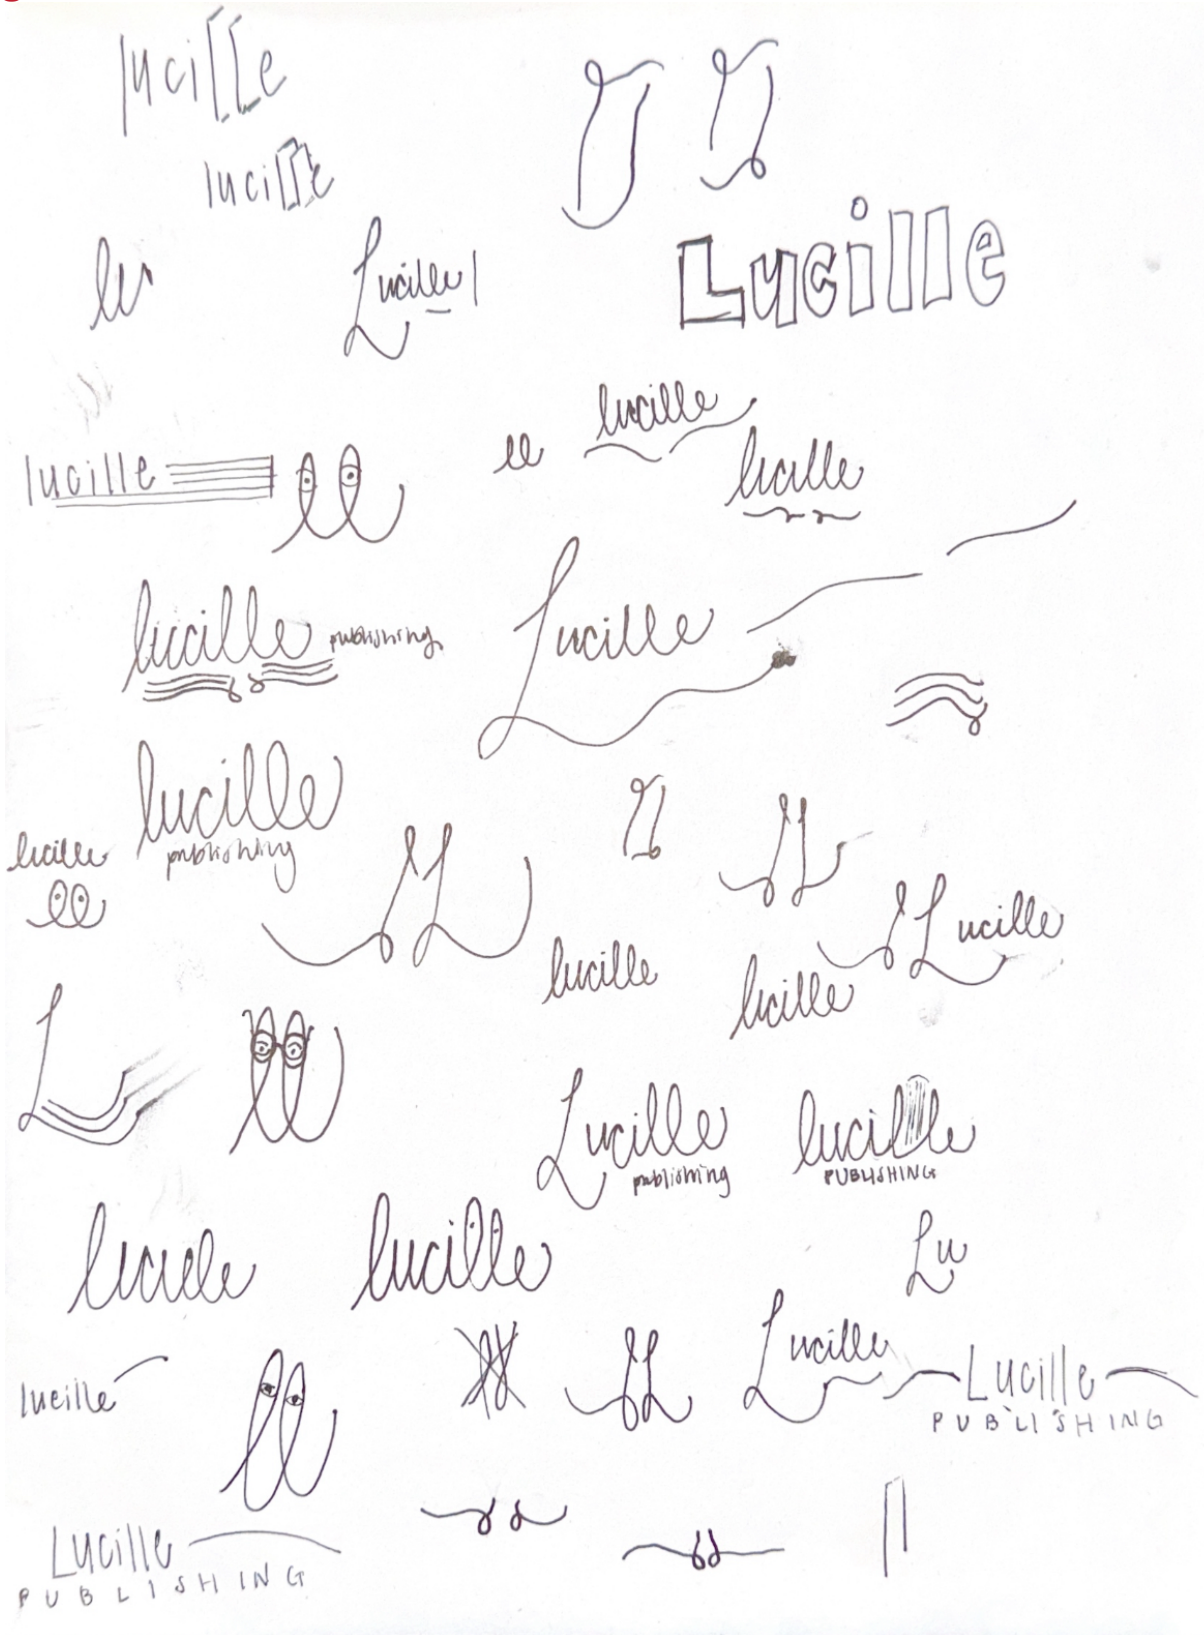 lucille
lucille
lu
Lucille
Lucille
lucille
ll
ll
lucille
lucille
lucille publishing
Lucille
lucille
publishing
lucille
ll
L
Lucille
lucille
lucille
L
ll
Lucille
publishing
lucille
PUBLISHING
lucille
lucille
Lu
lucille
ll
Lucille
Lucille
PUBLISHING
Lucille
PUBLISHING